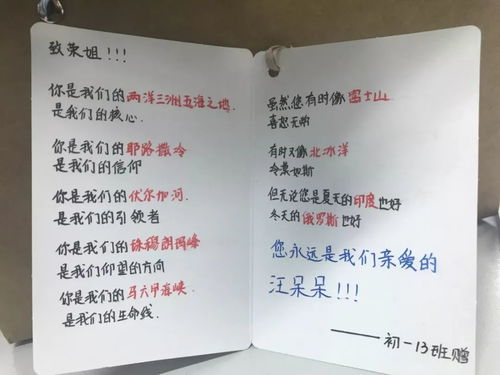 致荣姐!!!
你是我们的两洋三洲五海之地.
是我们的核心.
你是我们的耶路撒冷
是我们的信仰
你是我们的伏尔加河.
是我们的引领者
你是我们的珠穆朗玛峰
是我们仰望的方向
你是我们的马六甲海峡.
是我们的生命线.
虽然您有时像富士山.
喜怒无常
有时又像北冰洋
冷漠如斯
但无论您是夏天的印度也好
冬天的俄罗斯也好
您永远是我们亲爱的
汪呆呆!!!
——初一13班赠